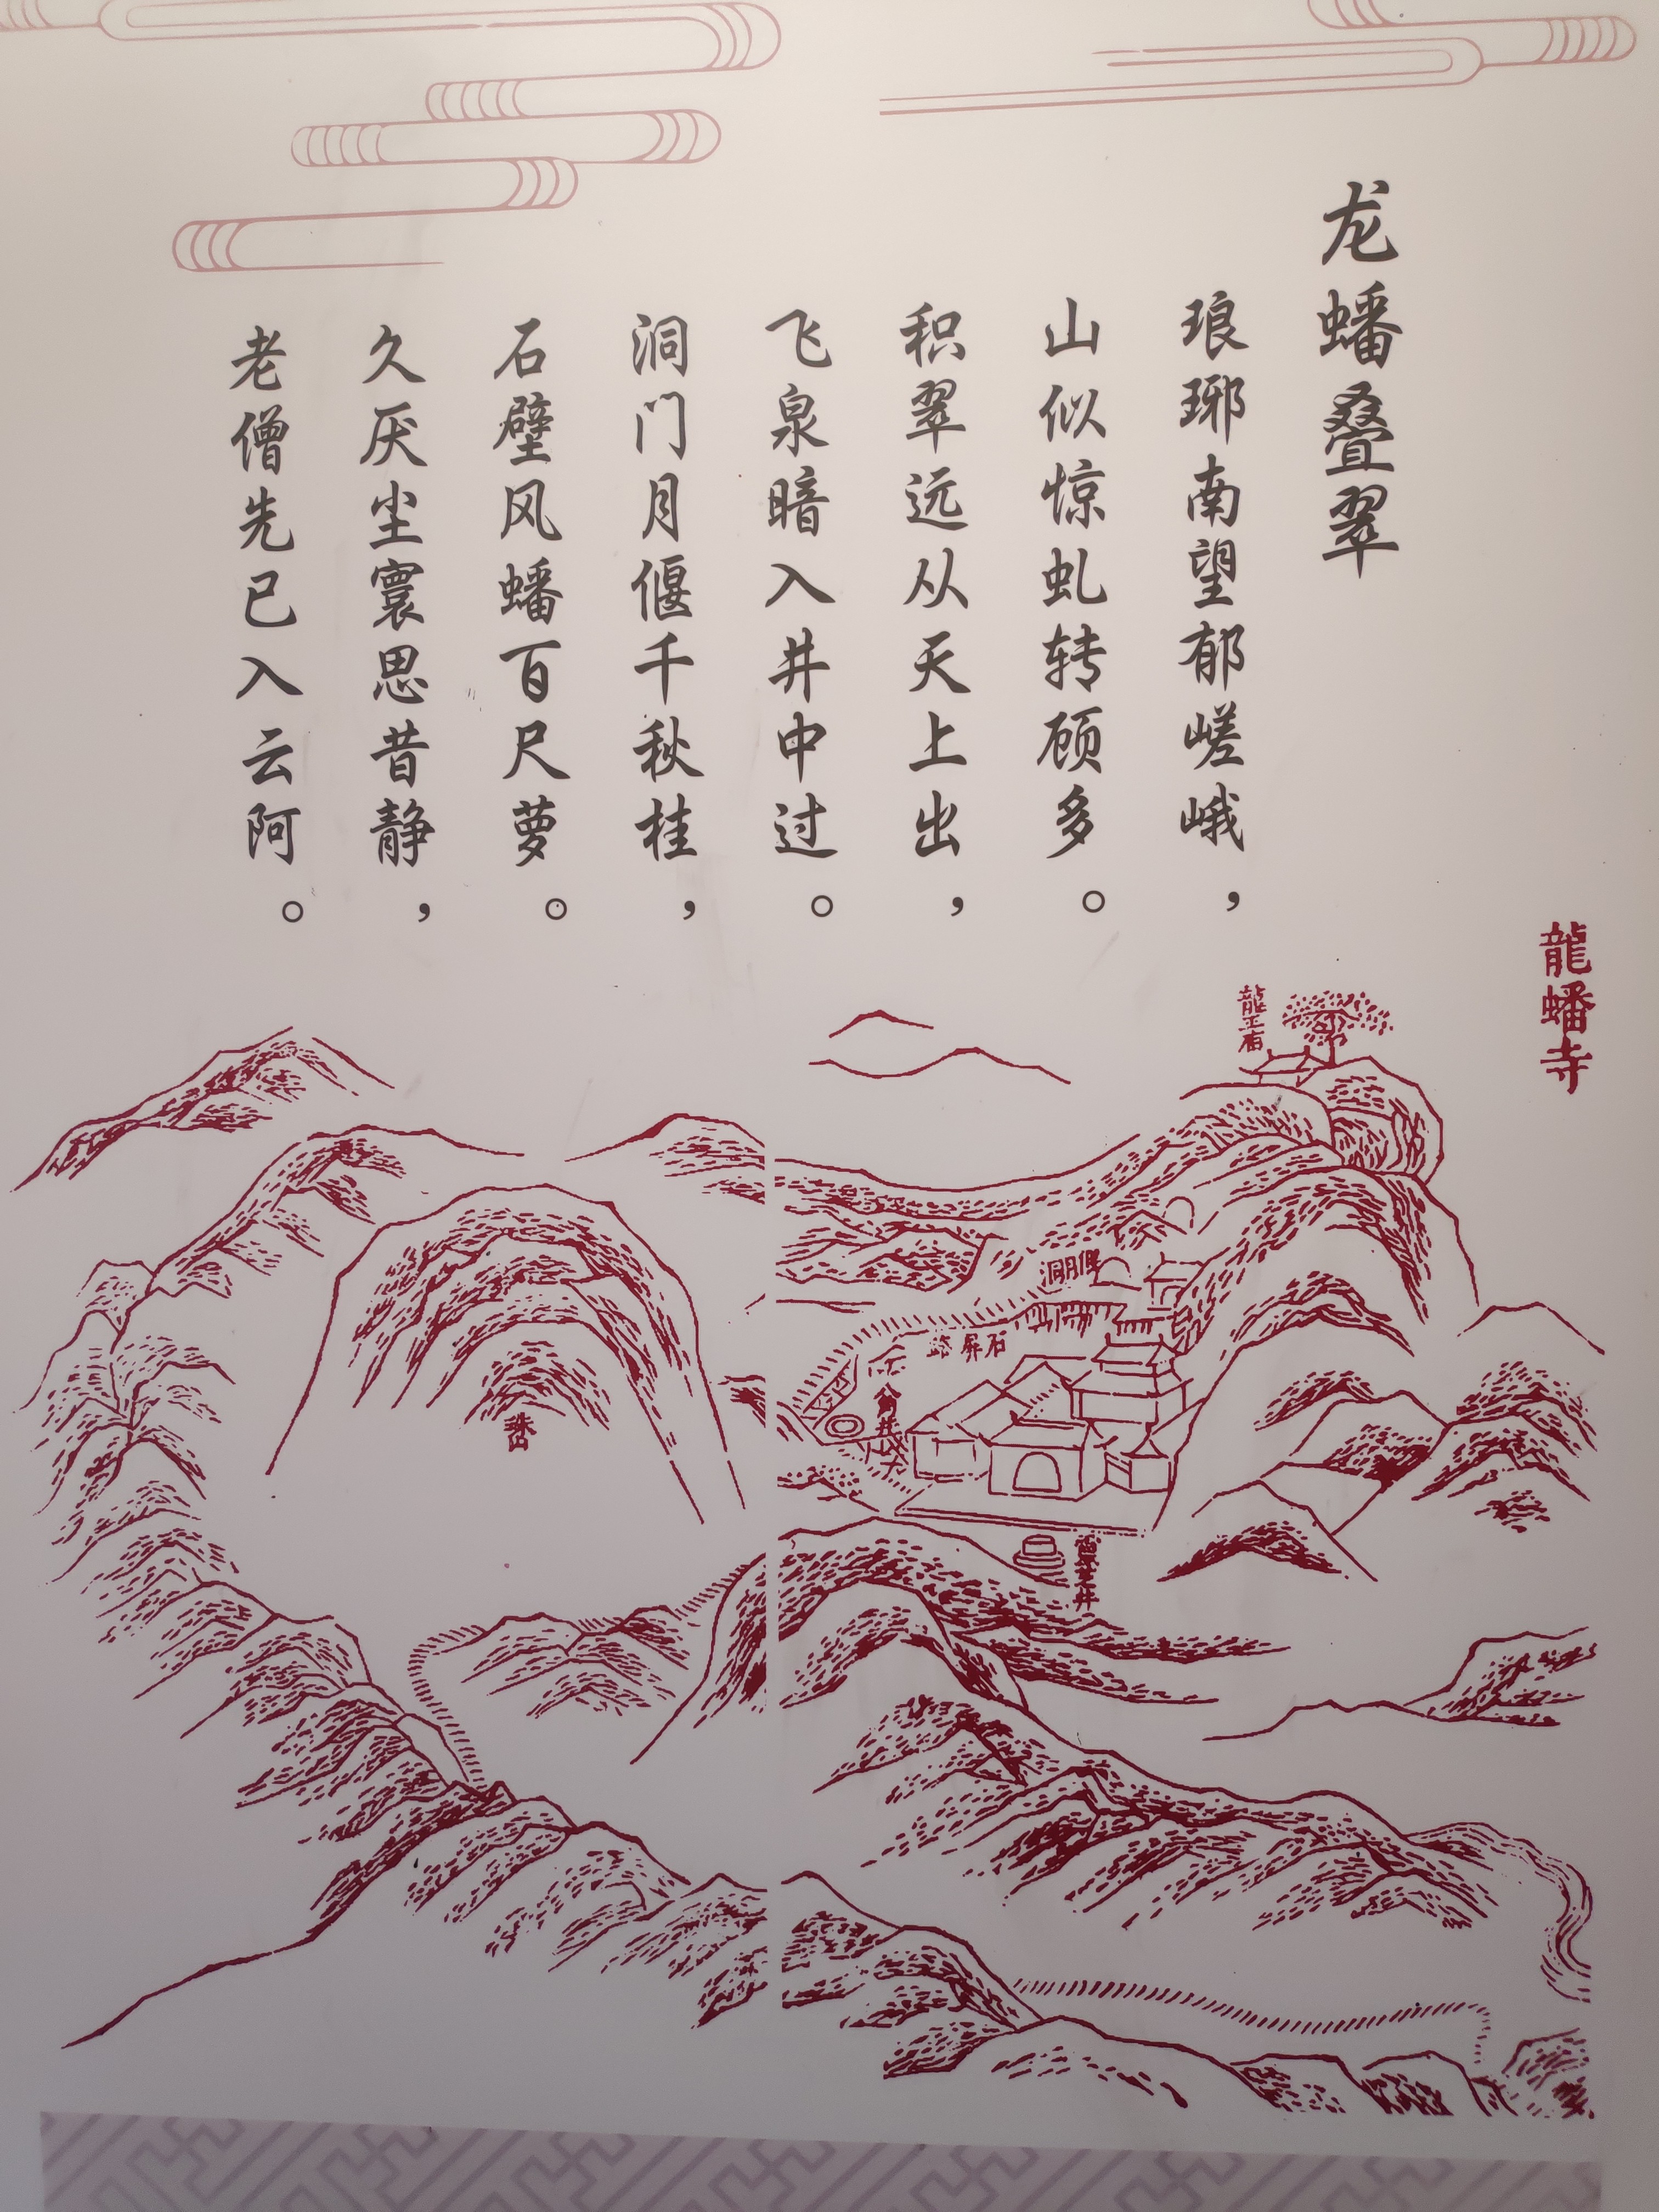 龙蟠叠翠
琅琊南望郁嵯峨，
山似惊虬转顾多。
积翠远从天上出，
飞泉暗入井中过。
洞门月偃千秋桂，
石壁风蟠百尺萝。
久厌尘寰思昔静，
老僧先已入云阿。
龍蟠寺
龍王廟
偃月洞
石屏路